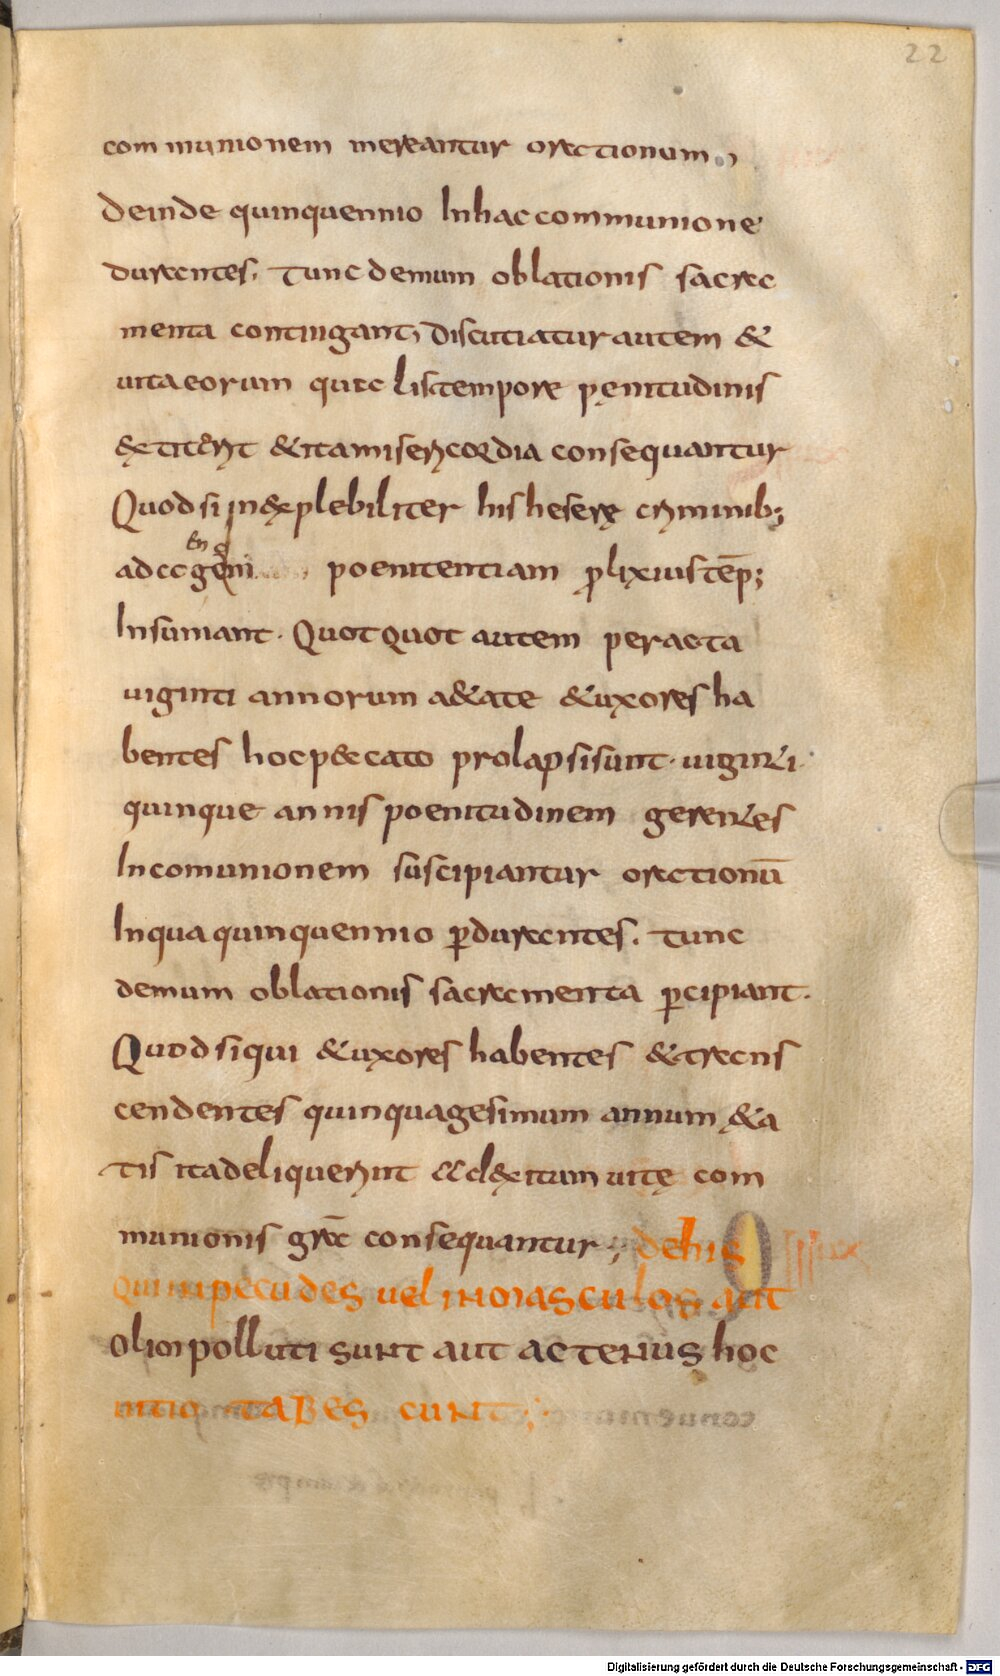 22
communionem mereantur orationum,
Deinde quinquennio Inhac communione
durantes, Tunc demum oblationis sacra
menta contingant, Discutiatur autem &
uita eorum quae lis tempore pęnitudinis
&xtiterit & ita misericordia consequantur
Quod si in&xplebiliter his hesere criminib;
ad agenda poenitentiam prolixius temp;
Insumant. Quotquot autem peracta
uiginti annorum a&ate & uxores ha
bentes hoc peccato prolapsi sunt. uiginti
quinque annis poenitudinem gerentes
In comunionem suscipiantur orationū
In qua quinquennio perdurantes. Tunc
demum oblationis sacramenta percipiant.
Quod si qui & uxores habentes & trans
cendentes quinquagesimum annum &a
tis ita deliquerint ad &xitum uitę com
munionis gratiā consequantur; dehis
qui in pecudes uel in masculos aut
olim polluti sunt aut actenus hoc
uitio tabescunt;
Digitalisierung gefördert durch die Deutsche Forschungsgemeinschaft - DFG